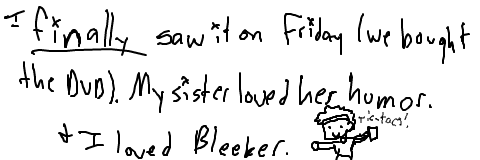 I finally saw it on Friday (we bought
the DVD). My sister loved her humor.
+ I loved Bleeker.
tic-tacs!